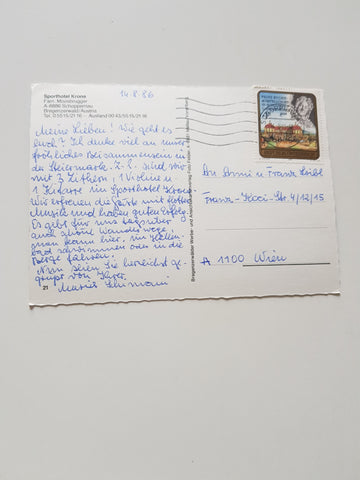 Sporthotel Krone
Fam. Moosbrugger
A-6886 Schoppernau
Bregenzerwald/Austria
Tel. 0 55 15/21 16 - Ausland 00 43/55 15/21 16
14.8.86
Meine Lieben! Wie geht es
Euch? Ich denke viel an unser
fröhliches Beisammensein in
der Steiermark. Z. Z. sind wir
mit 3 Zithern, 1 Violine u.
1 Gitarre im Sporthotel Krone.
Wir erfreuen die Gäste mit flotter
Musik und haben guten Erfolg.
Es gibt für uns tagsüber
auch schöne Wanderwege,
man kann hier im Hallen-
bad schwimmen oder in die
Berge fahren.
Nun seien Sie herzlichst ge-
grüßt von Ihrer
Maria
An Armi u Franz
Franz-Koci Str. 4/12/15
A 1100 Wien
Bregenzerwälder Werbe- und
21